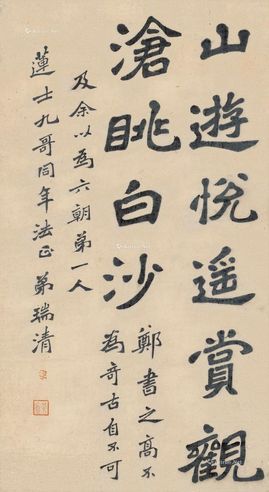 山遊悅遥賞觀
滄眺白沙
鄭書之高不
為奇古自不可
及余以為六朝第一人
蓮士九哥同年法正 弟瑞清